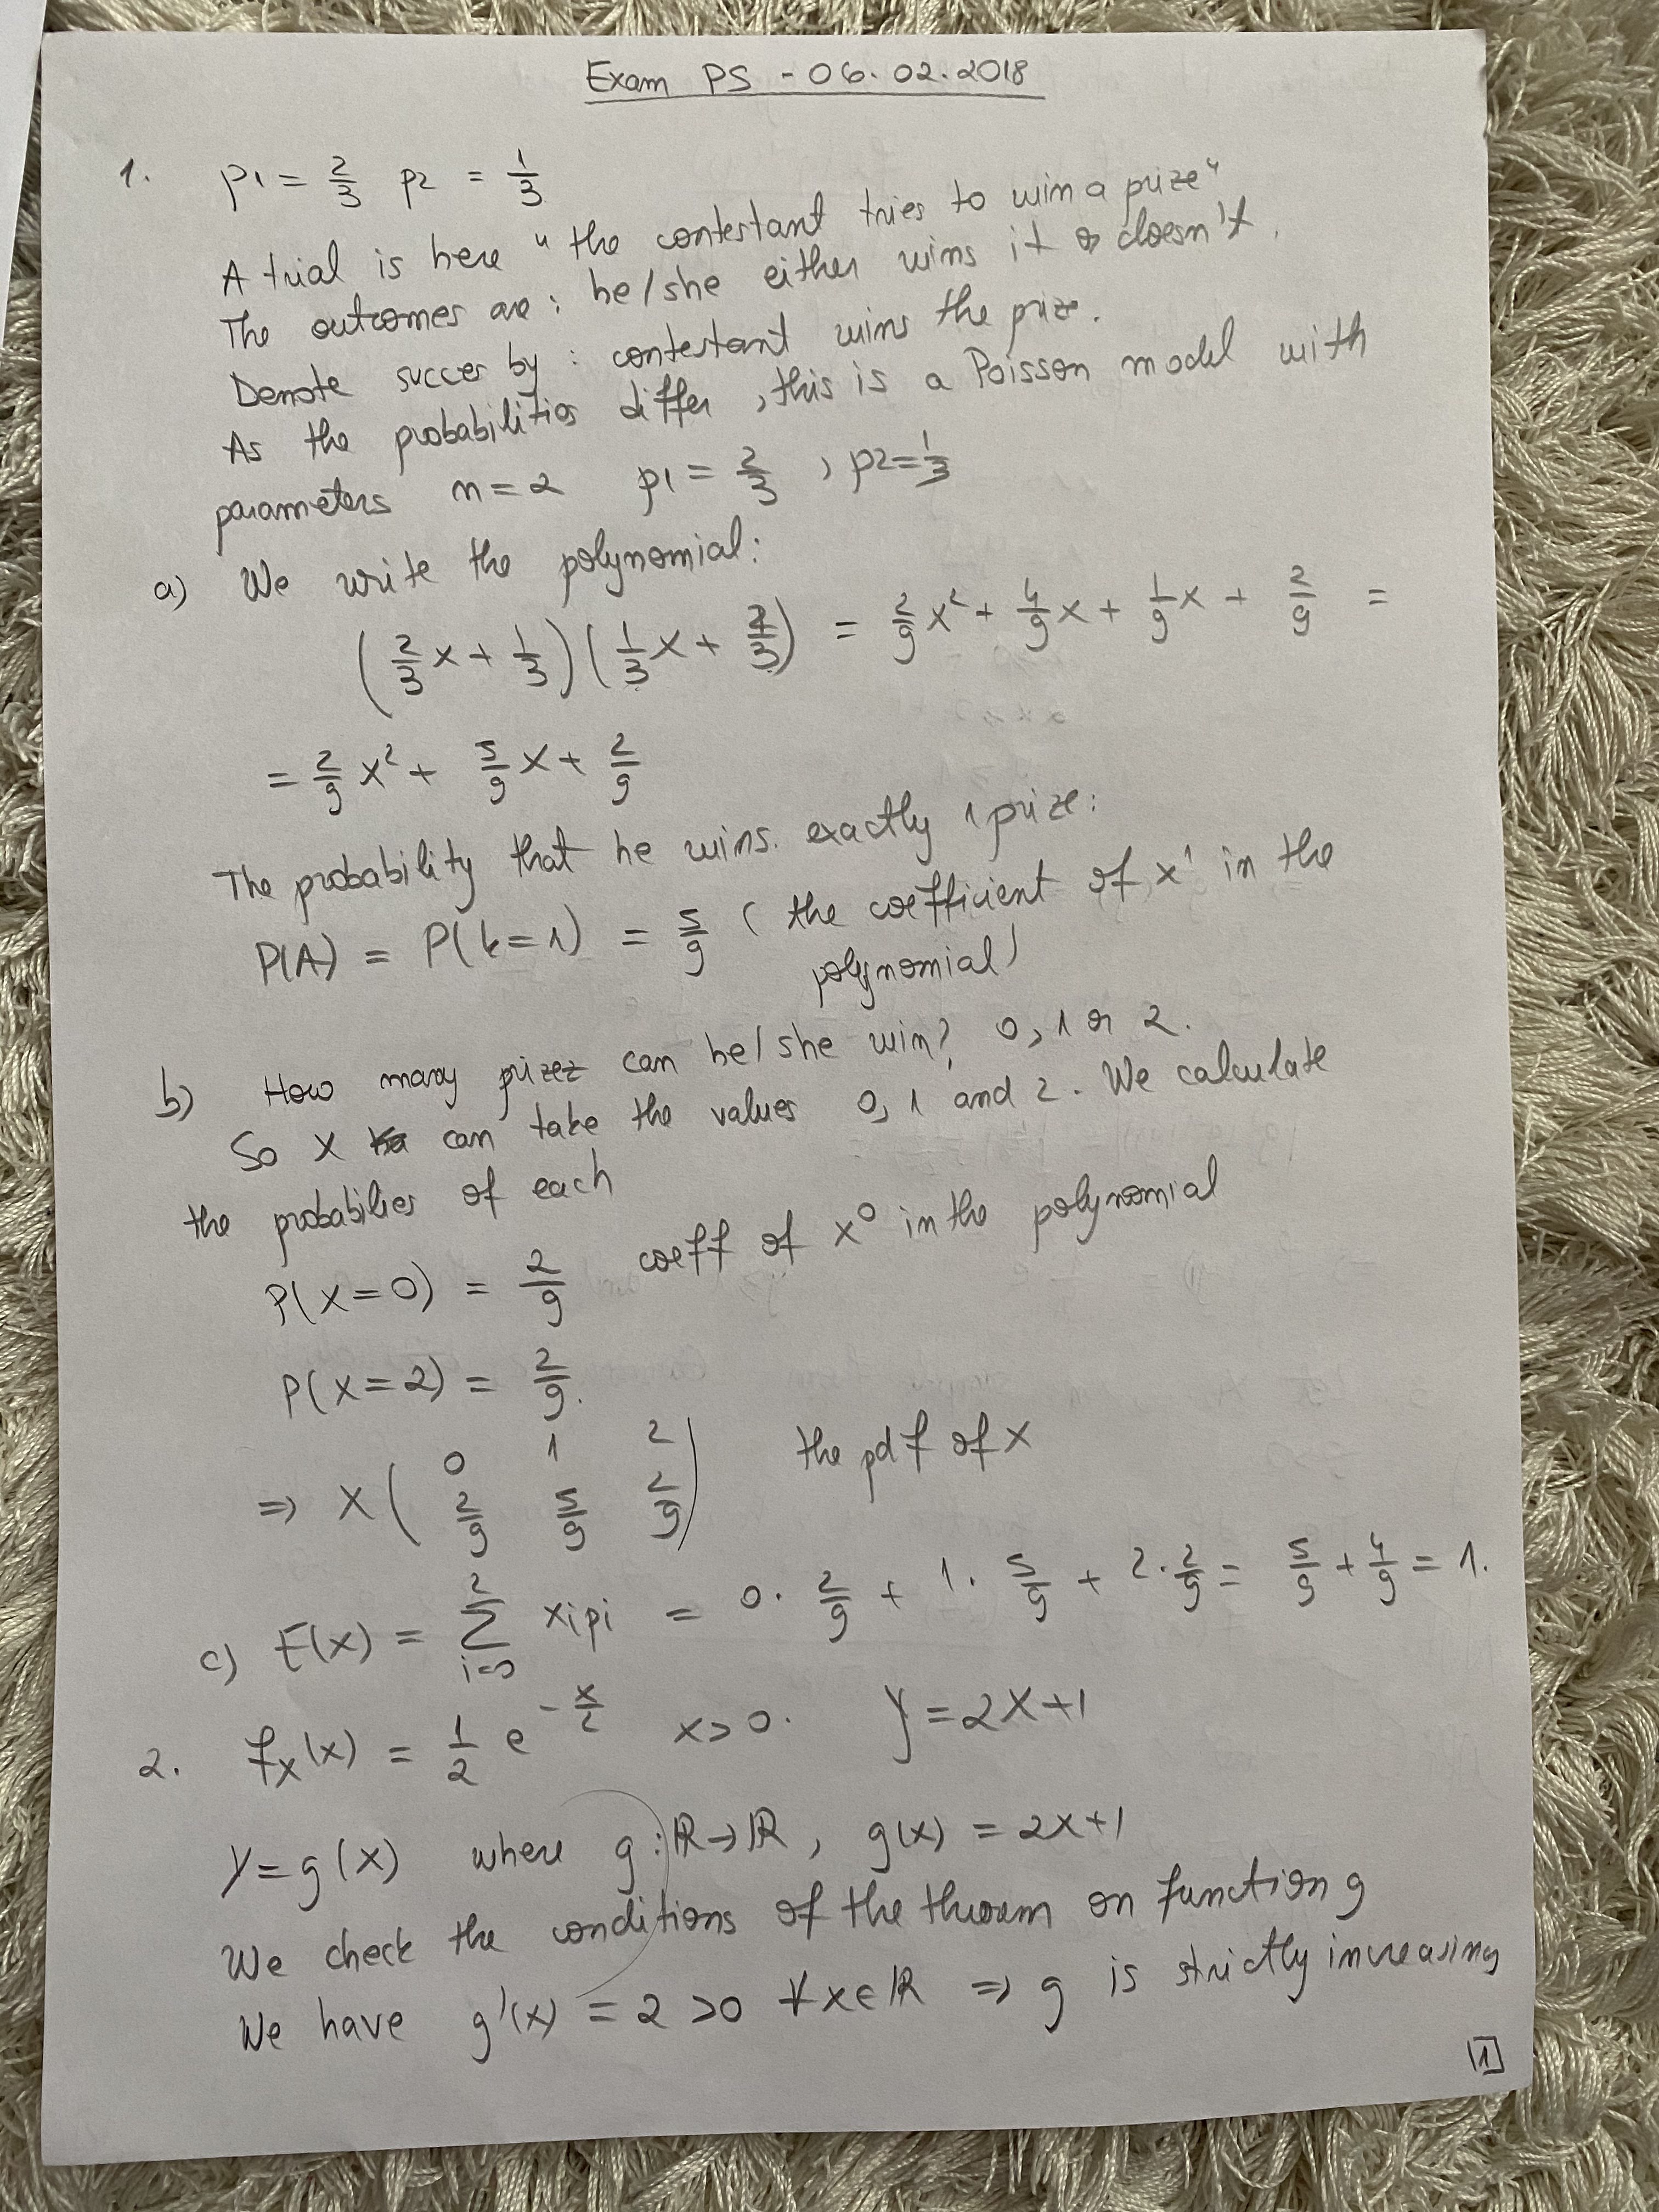 Exam PS - 06.02.2018
1. p1 = 2/3 p2 = 1/3
A trial is here "the contestant tries to win a prize"
The outcomes are: he/she either wins it or doesn't.
Denote succes by: contestant wins the prize.
As the probabilities differ, this is a Poisson model with
parameters n=2 p1 = 2/3, p2=1/3
a) We write the polynomial:
(2/3 x + 1/3)(1/3 x + 2/3) = 2/9 x² + 4/9 x + 1/9 x + 2/9 =
= 2/9 x² + 5/9 x + 2/9
The probability that he wins. exactly 1 prize:
P(A) = P(k=1) = 5/9 (the coefficient of x¹ in the
polynomial)
b) How many prizez can he/she win? 0, 1 or 2.
So X can take the values 0, 1 and 2. We calculate
the probabilies of each
P(X=0) = 2/9 coeff of x⁰ in the polynomial
P(X=2) = 2/9.
=> X ( 0 1 2
2/9 5/9 2/9 ) the pdf of X
c) E(X) = 2 Σ i=0 xipi = 0 · 2/9 + 1 · 5/9 + 2 · 2/9 = 5/9 + 4/9 = 1.
2. fX(x) = 1/2 e^(-x/2) x>0. Y = 2X+1
Y = g(X) where g: ℝ→ℝ, g(x) = 2x+1
We check the conditions of the theorem on function g
We have g'(x) = 2 >0 ∀x∈ℝ => g is strictly increasing
[1]